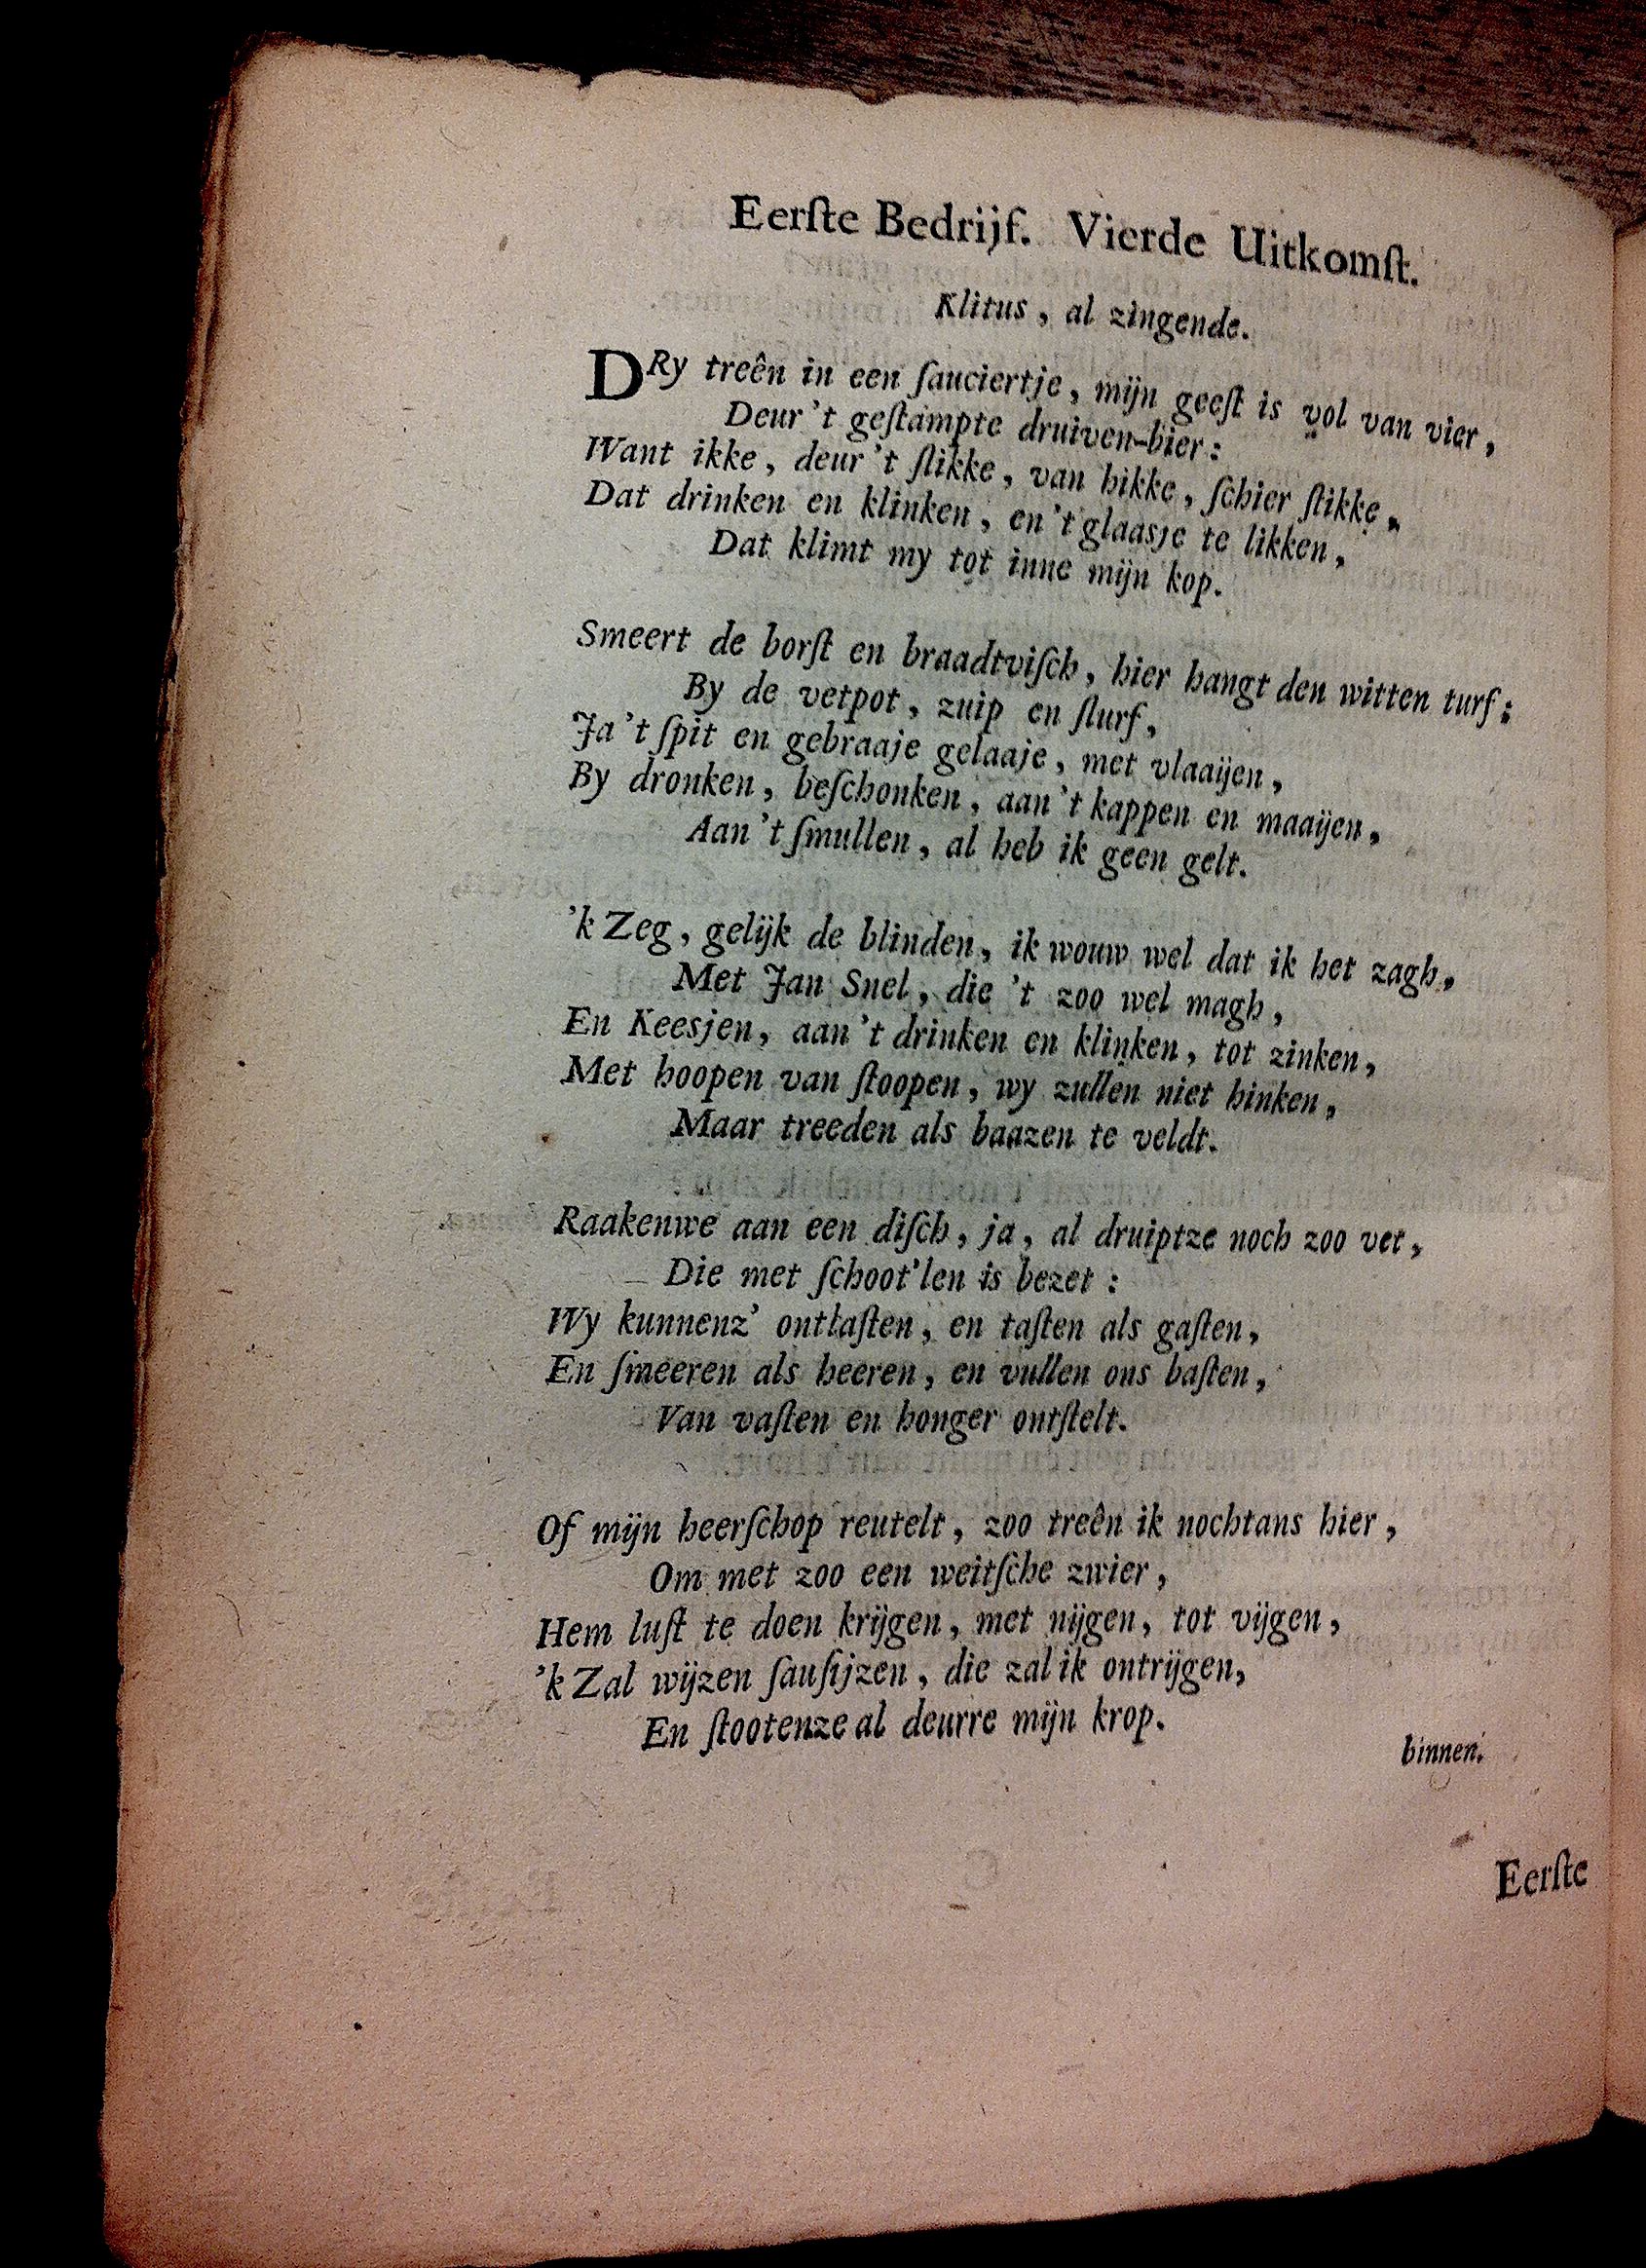 Eerſte Bedrijf. Vierde Uitkomſt.
Klitus, al zingende.
DRy treên in een ſauciertje, mijn geeſt is vol van vier,
Deur 't geſtampte druiven-bier:
Want ikke, deur 't ſlikke, van hikke, ſchier ſtikke,
Dat drinken en klinken, en 't glaasje te likken,
Dat klimt my tot inne mijn kop.
Smeert de borſt en braadtviſch, hier hangt den witten turf:
By de vetpot, zuip en ſlurf,
Ja 't ſpit en gebraaje gelaaje, met vlaaijen,
By dronken, beſchonken, aan 't kappen en maaijen,
Aan 't ſmullen, al heb ik geen gelt.
'k Zeg, gelijk de blinden, ik wouw wel dat ik het zagh,
Met Jan Snel, die 't zoo wel magh,
En Keesjen, aan 't drinken en klinken, tot zinken,
Met hoopen van ſtoopen, wy zullen niet hinken,
Maar treeden als baazen te veldt.
Raakenwe aan een diſch, ja, al druiptze noch zoo vet,
Die met ſchoot'len is bezet:
Wy kunnenz' ontlaſten, en taſten als gaſten,
En ſmeeren als heeren, en vullen ons baſten,
Van vaſten en honger ontſtelt.
Of mijn heerſchop reutelt, zoo treên ik nochtans hier,
Om met zoo een weitſche zwier,
Hem luſt te doen krijgen, met nijgen, tot vijgen,
'k Zal wijzen ſauſijzen, die zal ik ontrijgen,
En ſtootenze al deurre mijn krop.
binnen.
Eerſte